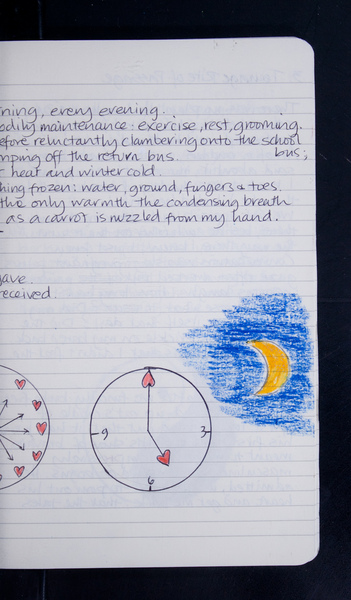 ning, every evening.
odily maintenance: exercise, rest, grooming.
efore reluctantly clambering onto the school
bus;
mping off the return bus.
heat and winter cold.
hing frozen: water, ground, fingers & toes.
the only warmth the condensing breath
as a carrot is nuzzled from my hand.
gave
received.
9
3
6